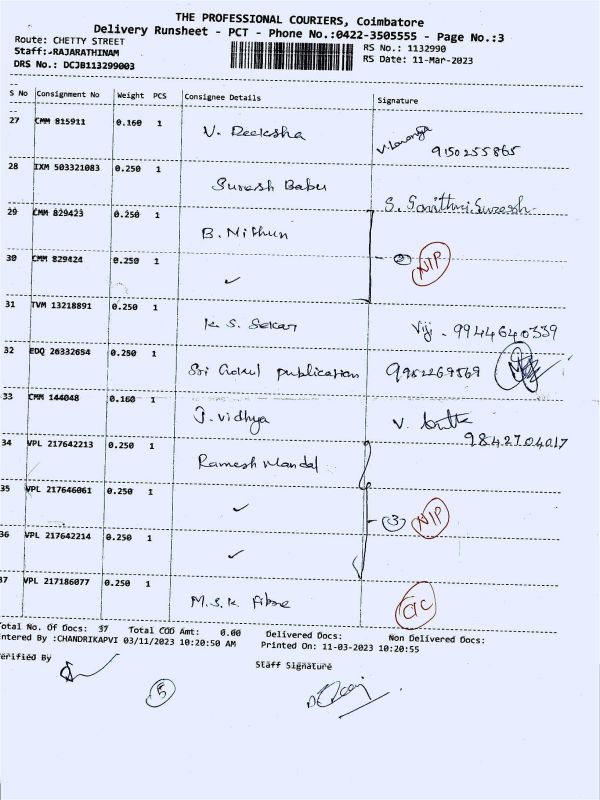 THE PROFESSIONAL COURIERS, Coimbatore
Delivery Runsheet - PCT - Phone No.:0422-3505555 - Page No.:3
Route: CHETTY STREET
RS No.: 1132990
Staff:-RAJARATHINAM
RS Date: 11-Mar-2023
DRS No.: DCJB113299003
S No Consignment No Weight PCS Consignee Details Signature
27 CMM 815911 0.160 1 V. Deeksha 9150255865
28 IXM 503321083 0.250 1 Suresh Babu S. Savithri Suresh
29 CMM 829423 0.250 1 B. Mithun
30 CMM 829424 0.250 1 ✓ 2 NIP
31 TVM 13218891 0.250 1 K. S. Sekar Viji - 9944640339
32 EDQ 26332654 0.250 1 Sri Gokul publication 9952269569
33 CMM 144048 0.160 1 J. Vidhya V. 9842704017
34 VPL 217642213 0.250 1 Ramesh Mandal
35 VPL 217646061 0.250 1 ✓ 3 NIP
36 VPL 217642214 0.250 1 ✓
37 VPL 217186077 0.250 1 M.S.K. Fibre
Total No. Of Docs: 37 Total COD Amt: 0.00 Delivered Docs: Non Delivered Docs:
Entered By :CHANDRIKAPVI 03/11/2023 10:20:50 AM Printed On: 11-03-2023 10:20:55
Verified By Staff Signature
5